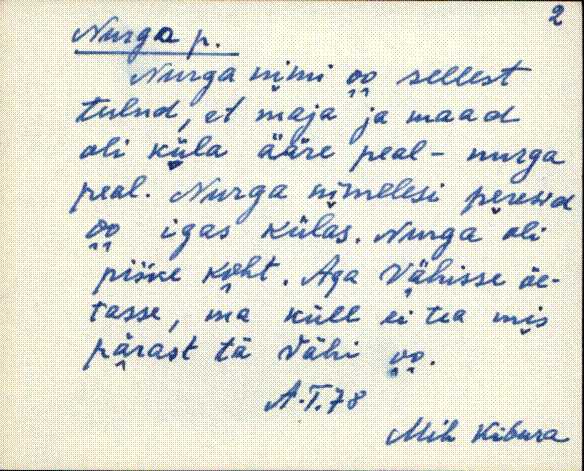 2
Nurga p.
Nurga nimi oo sellest
tulnd, et maja ja maad
oli küla ääre peal - nurga
peal. Nurga nimelesi peresid
oo igas külas. Nurga oli
piske koht. Aga Vähisse öe-
tasse, ma küll ei tea mis
pärast tä Vähi oo.
A.T. 78
Mih Kibura